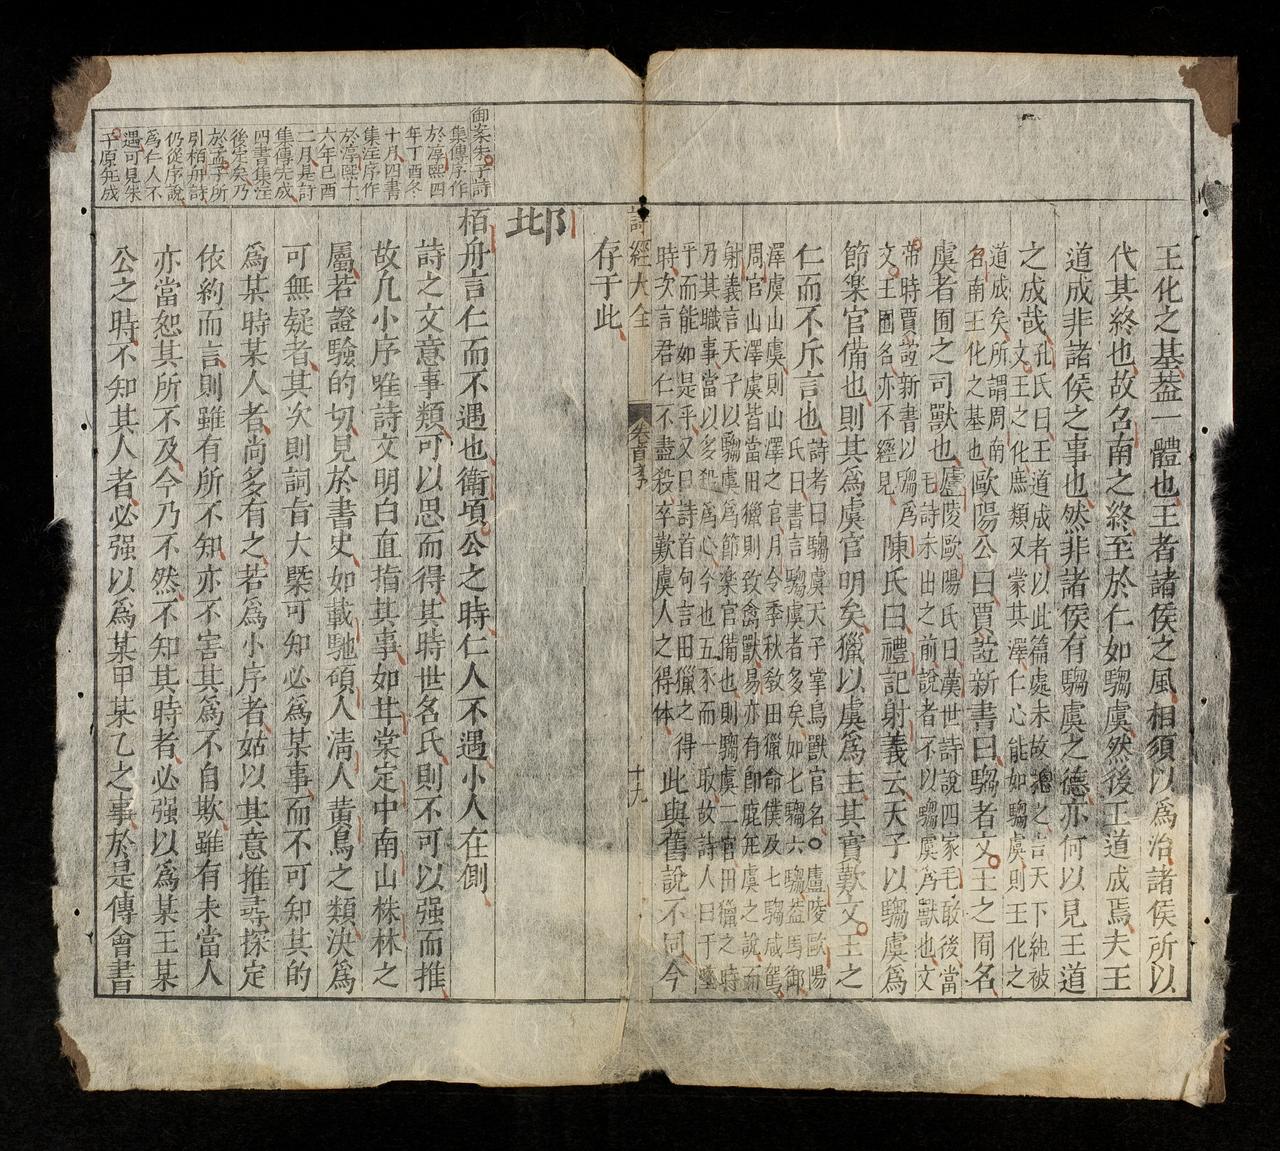 王化之基葢一體也王者諸侯之風相須以爲治諸侯所以
代其終也故召南之終至於仁如騶虞然後王道成焉夫王
道成非諸侯之事也然非諸侯有騶虞之德亦何以見王道
之成哉
孔氏曰王道成者以此篇處末故總之言天下純被
文王之化庶類又蒙其澤仁心能如騶虞則王化之
道成矣所謂周南
召南王化之基也
歐陽公曰賈誼新書曰騶者文王之囿名
虞者囿之司獸也
廬陵歐陽氏曰漢世詩說四家毛敢後當
毛詩未出之前說者不以騶虞爲獸也文
帝時賈誼新書以騶爲
文王囿名亦不經見
陳氏曰禮記射義云天子以騶虞爲
節樂官備也則其爲虞官明矣獵以虞爲主其實歎文王之
仁而不斥言也
詩考曰騶虞天子掌鳥獸官名○廬陵歐陽
氏曰書言騶虞者多矣如七騶六騶葢馬御
澤虞山虞則山澤之官月令季秋敎田獵命僕及七騶咸駕
周官山澤虞皆當田獵則致禽獸易亦有卽鹿无虞之說而
射義言天子以騶虞爲節樂官備也則騶虞二官田獵之時
乃其職事當以多殺爲心今也五豝而一取故詩人曰于嗟
乎而能如是乎又曰詩首句言田獵之得
時次言君仁不盡殺卒歎虞人之得体
此與舊說不同今
存于此
詩經大全
卷首序
十九
邶
栢舟言仁而不遇也衛頃公之時仁人不遇小人在側
詩之文意事類可以思而得其時世名氏則不可以强而推
故凡小序唯詩文明白直指其事如甘棠定中南山株林之
屬若證驗的切見於書史如載馳碩人淸人黃鳥之類決爲
可無疑者其次則詞旨大槩可知必爲某事而不可知其的
爲某時某人者尚多有之若爲小序者姑以其意推尋探定
依約而言則雖有所不知亦不害其爲不自欺雖有未當人
亦當恕其所不及今乃不然不知其時者必强以爲某王某
公之時不知其人者必强以爲某甲某乙之事於是傳會書
御案朱子詩
集傳序作
於淳熙四
年丁酉冬
十月四書
集註序作
於淳熙十
六年巳酉
二月是詩
集傳先成
四書集註
後定矣乃
於孟子所
引栢舟詩
仍從序說
爲仁人不
遇可見朱
子原先成